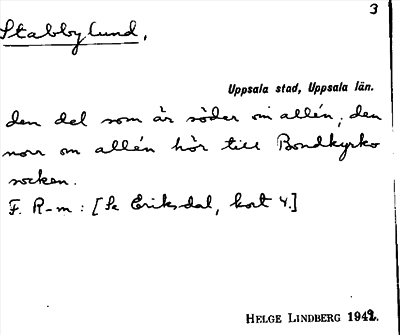 3
Stabbylund,
Uppsala stad, Uppsala län.
den del som är söder om allén; den
norr om allén hör till Bondkyrko
socken.
F. R-m : [Se Eriksdal, kort 4.]
HELGE LINDBERG 1942.